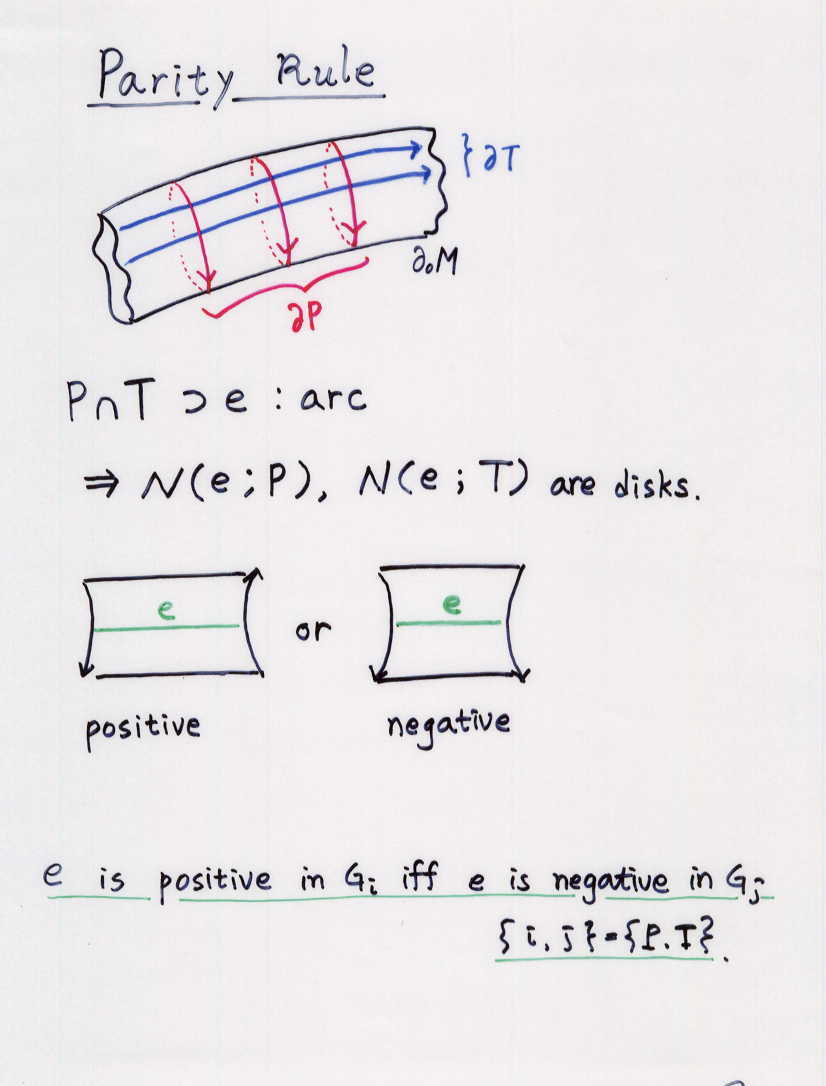 Parity Rule
} ∂T
∂₀M
∂P
P∩T ⊃ e : arc
⇒ N(e ; P), N(e ; T) are disks.
e or e
positive negative
e is positive in Gᵢ iff e is negative in Gⱼ
{i, j} = {P, T}.